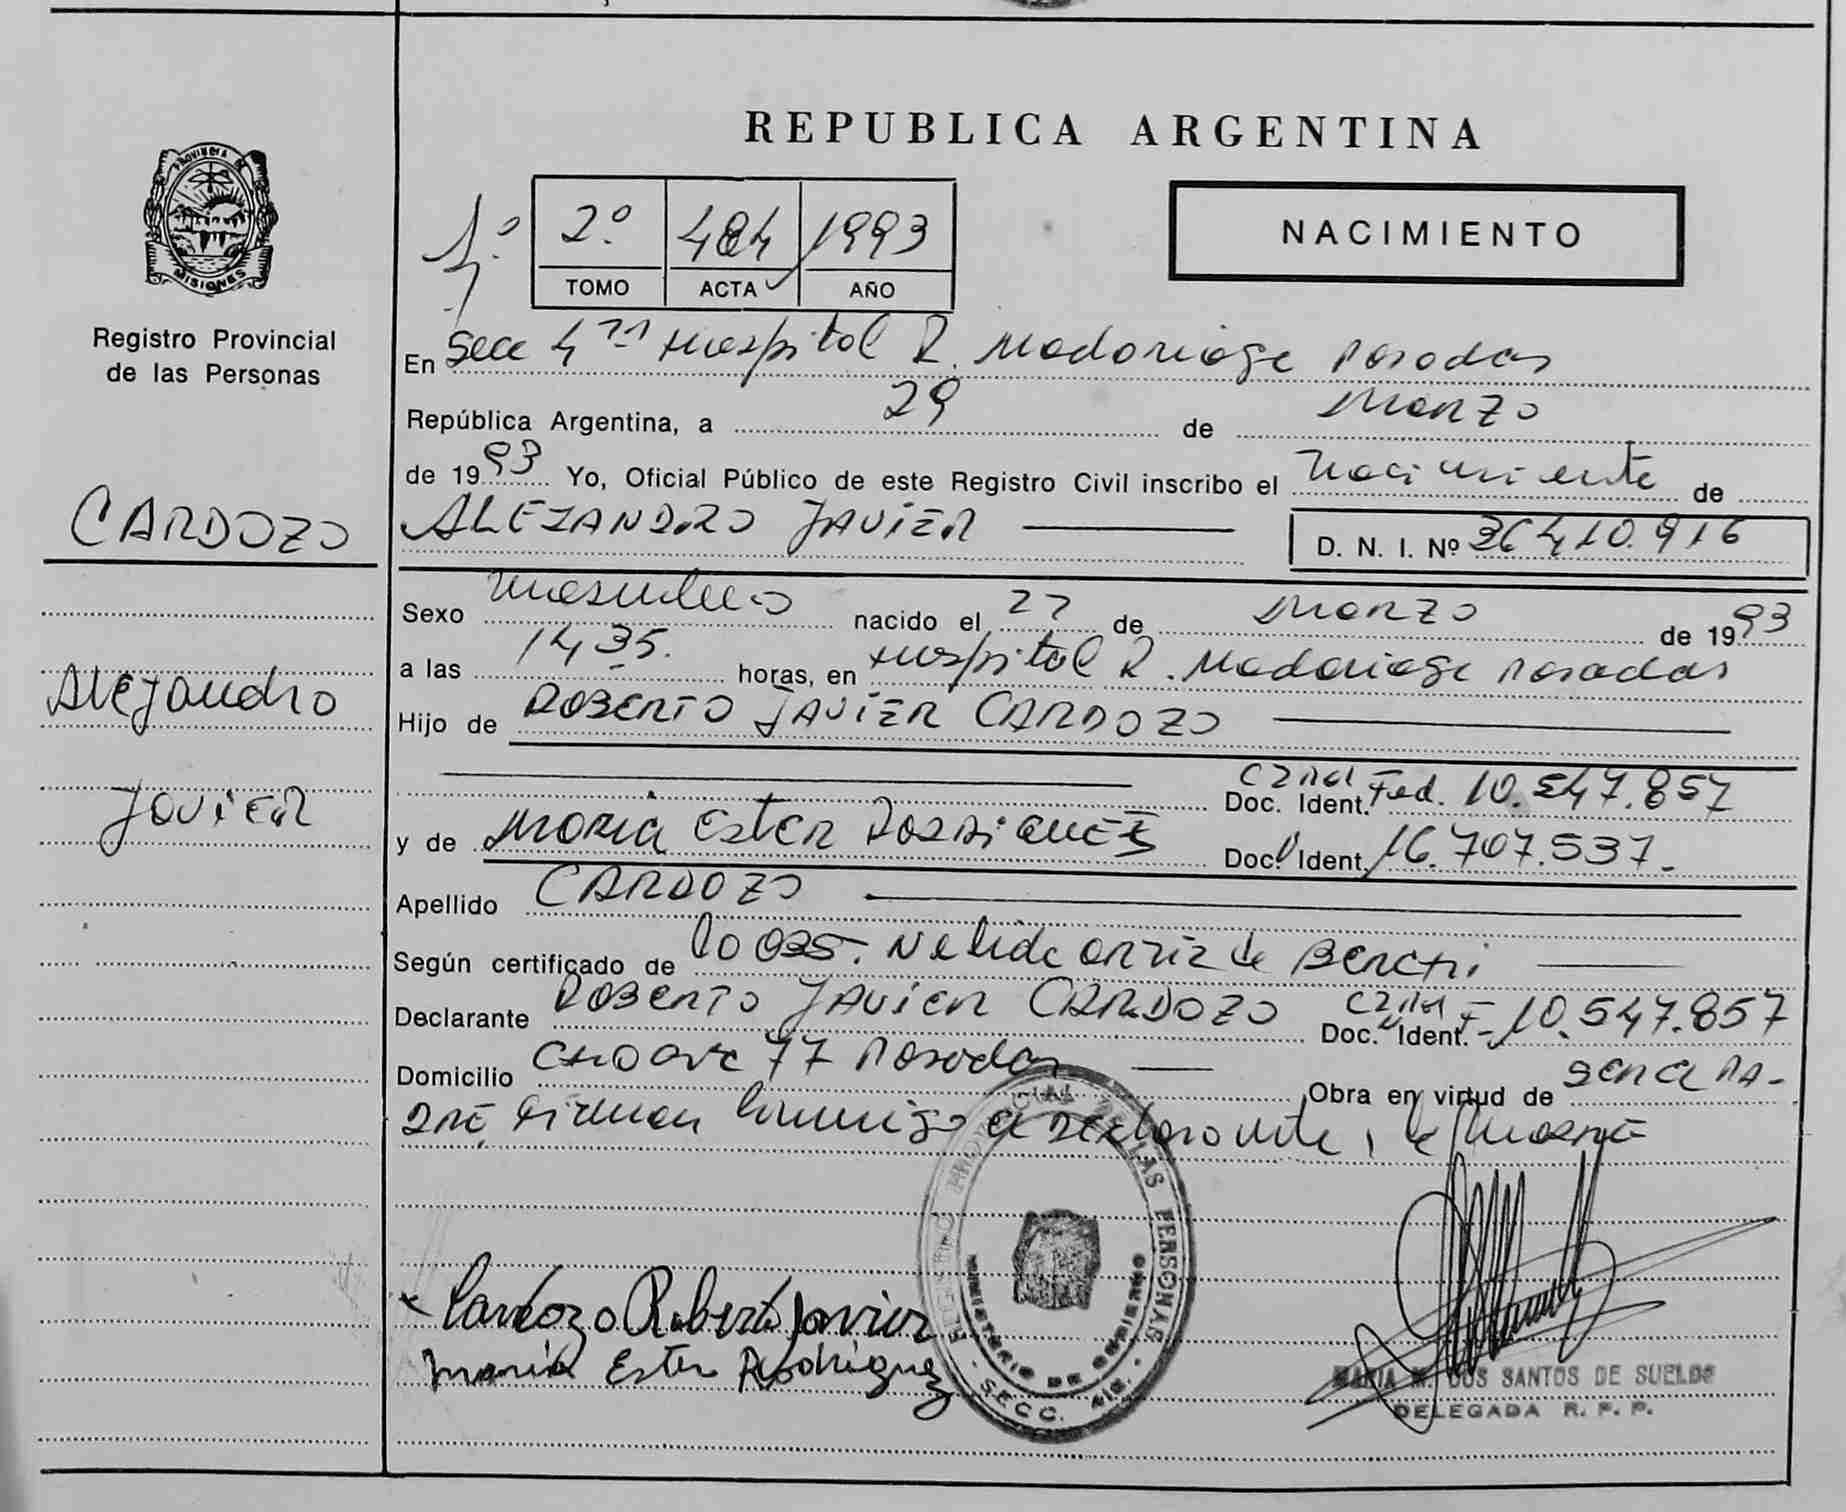 REPUBLICA ARGENTINA
NACIMIENTO
1º
2º 484 1993
TOMO ACTA AÑO
PROVINCIA DE
MISIONES
Registro Provincial
de las Personas
CARDOZO
Alejandro
Javier
En Secc 4ta Hospital R. Madariaga Posadas
República Argentina, a 29 de Marzo
de 1993 Yo, Oficial Público de este Registro Civil inscribo el Nacimiento de
ALEJANDRO JAVIER
D. N. I. Nº 36410.916
Sexo Masculino nacido el 27 de Marzo de 1993
a las 14 35. horas, en Hospital R. Madariaga Posadas
Hijo de ROBERTO JAVIER CARDOZO
Doc. Ident. Fed. 10.547.857
y de Maria Ester Rodriguez Doc. Ident. 16.707.537.-
Apellido CARDOZO
Según certificado de Nelida Ortiz de
Declarante ROBERTO JAVIER CARDOZO Doc. Ident. F- 10.547.857
Domicilio 77 Posadas Obra en virtud de ser el PA-
DRE, Firman conmigo el declarante, la Madre
Cardozo Roberto Javier
María Ester Rodríguez
REGISTRO PROVINCIAL DE LAS PERSONAS
MINISTERIO DE GOBIERNO
SECC. MIS.
MARIA M. DOS SANTOS DE SUELDO
DELEGADA R. P. P.